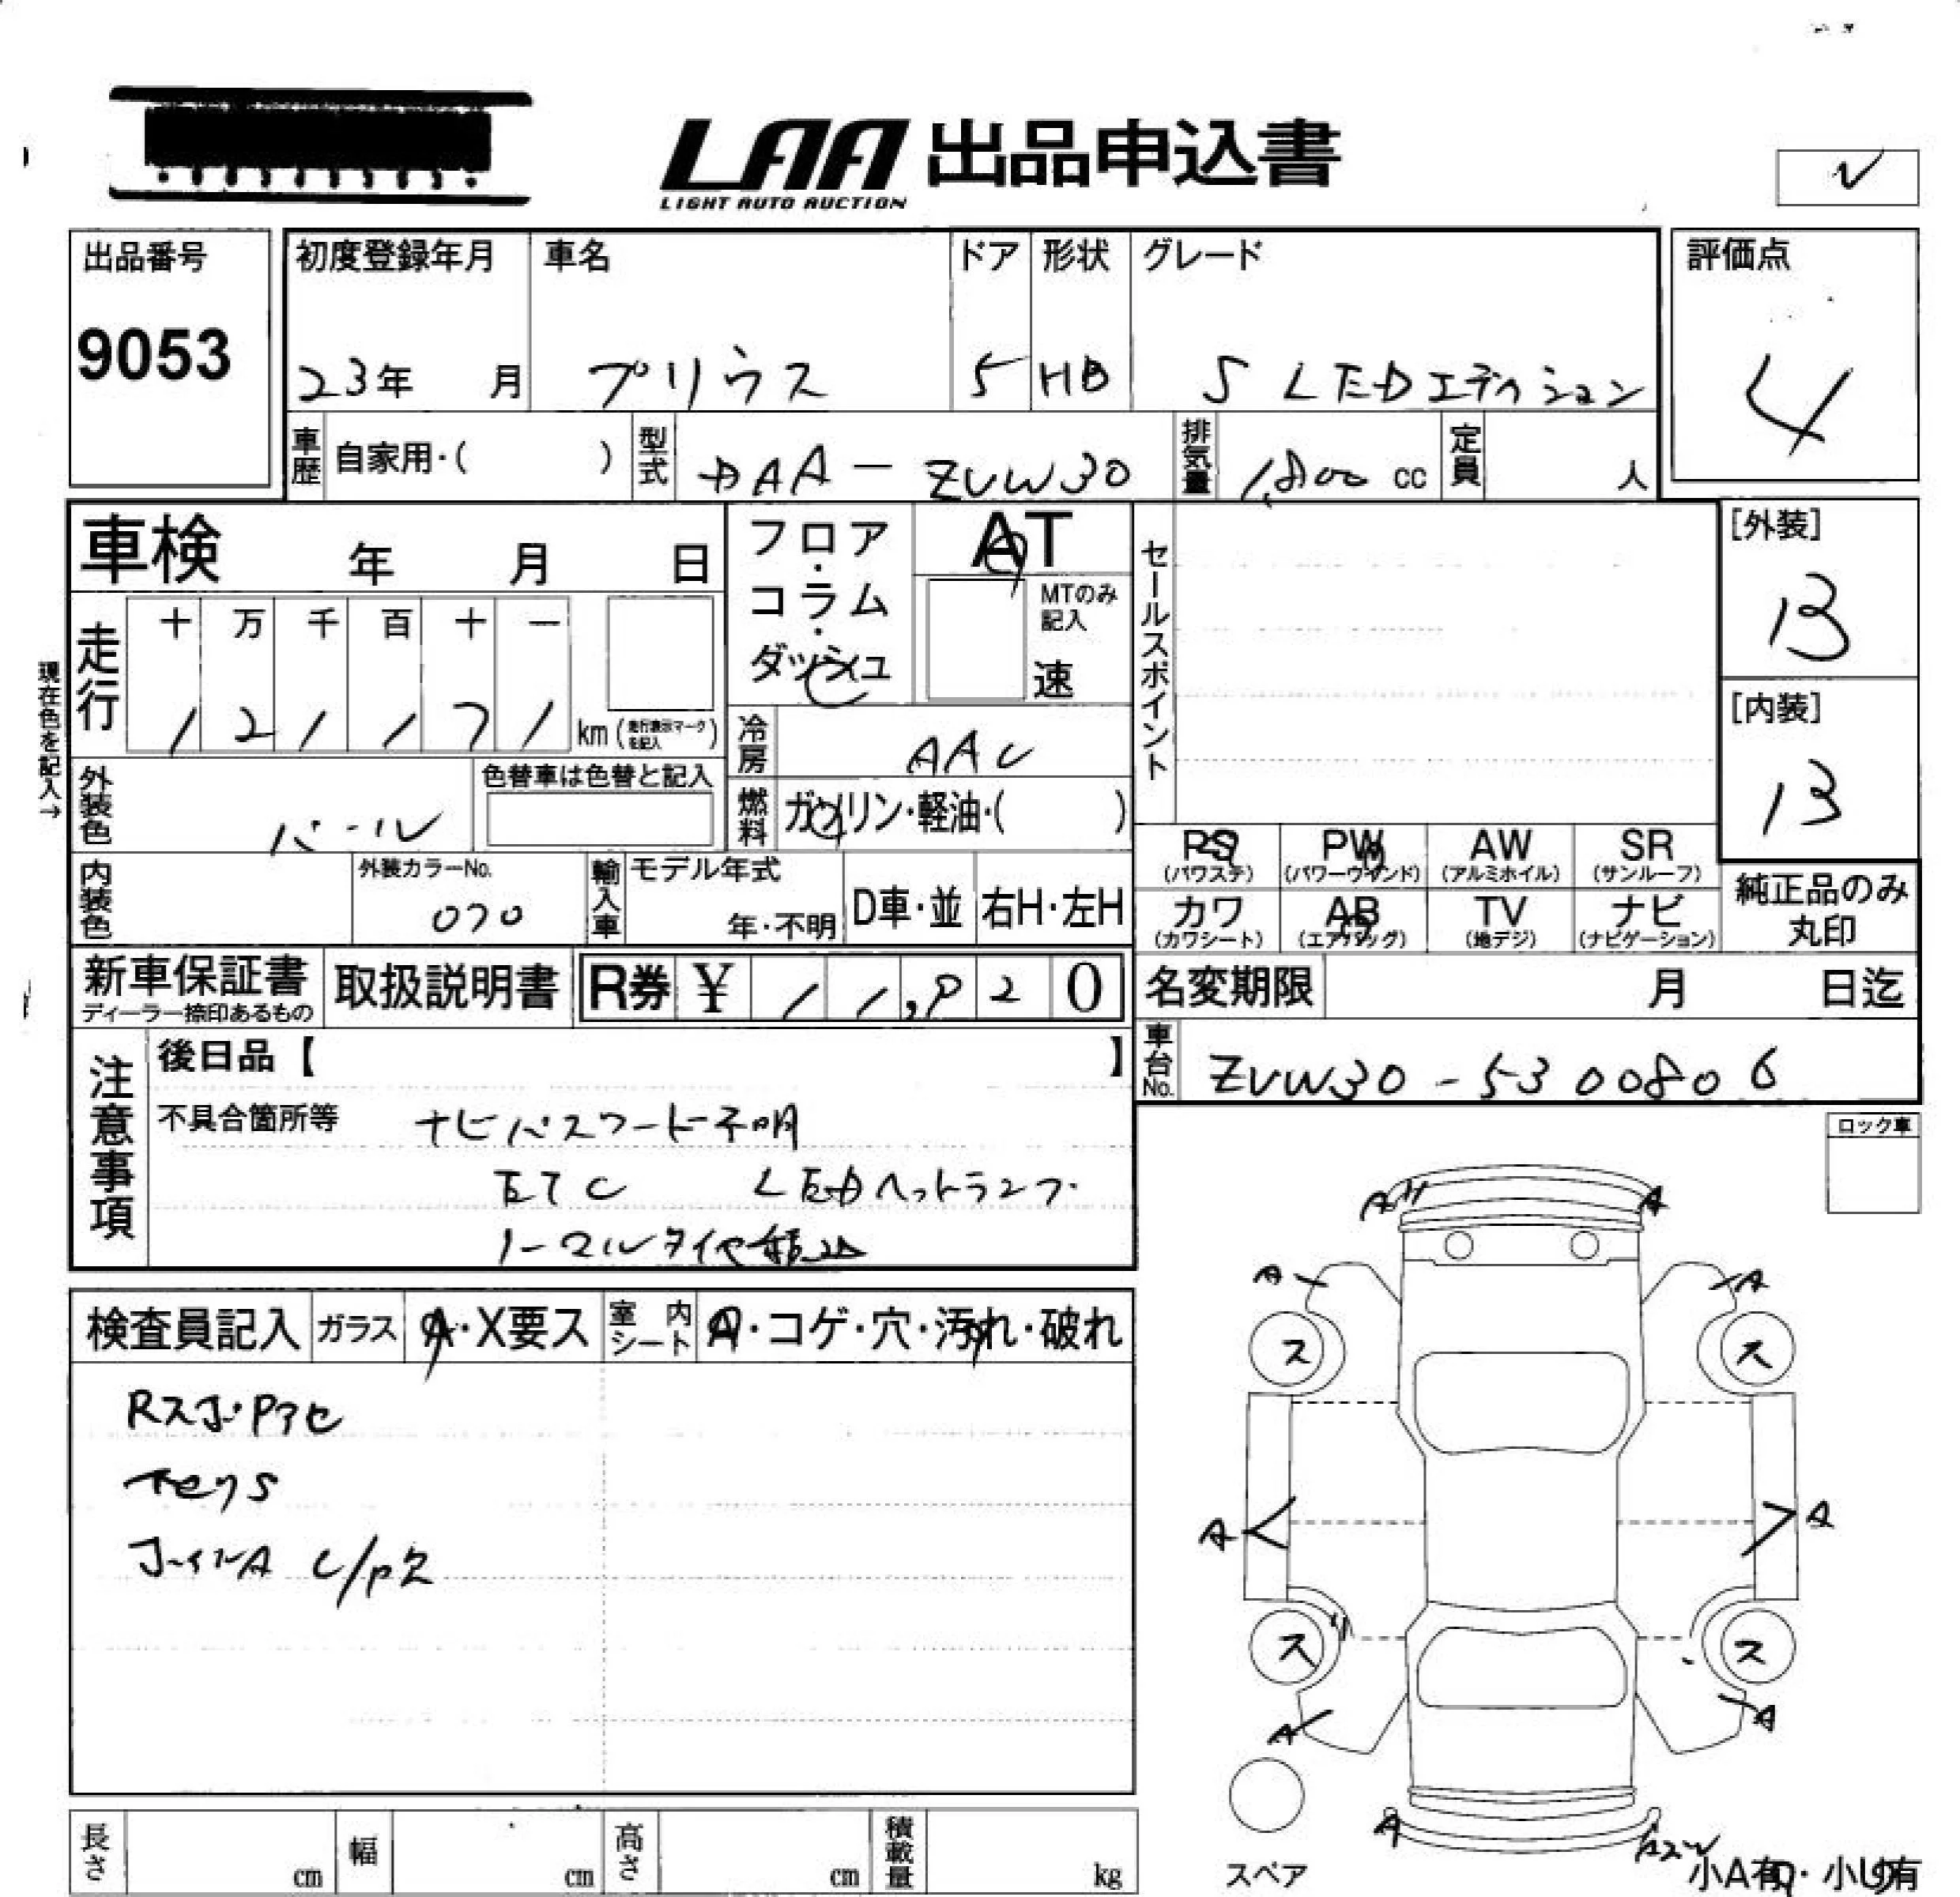 LAA 出品申込書
LIGHT AUTO AUCTION
出品番号
9053
初度登録年月
23年 月
車名
プリウス
ドア
5
形状
HB
グレード
S LEDエディション
評価点
4
車歴 自家用・( )
型式 DAA-ZVW30
排気量 1,800 cc
定員 人
車検 年 月 日
フロア・コラム・ダッシュ
AT
MTのみ記入
速
セールスポイント
[外装]
B
[内装]
B
現在色を記入→
走行 十 万 千 百 十 一
1 2 1 1 7 1 km (走行表示マークを記入)
冷房 AAC
燃料 ガソリン・軽油・( )
外装色 パール
色替車は色替と記入
内装色
外装カラーNo.
070
輸入車 モデル年式
年・不明
D車・並 右H・左H
PS (パワステ)
PW (パワーウインド)
AW (アルミホイル)
SR (サンルーフ)
カワ (カワシート)
AB (エアバッグ)
TV (地デジ)
ナビ (ナビゲーション)
純正品のみ丸印
新車保証書
ディーラー捺印あるもの
取扱説明書
R券 ¥ 1 1,9 2 0
名変期限 月 日迄
車台No. ZVW30-5300806
注意事項
後日品【 】
不具合箇所等 ナビパスワード不明
ETC LEDヘットランプ
ノーマルタイヤ積込
ロック車
検査員記入 ガラス A・X要ス
室内シート A・コゲ・穴・汚れ・破れ
A A
A A
ス ス
A A
ス ス
A A
A
スペア
小A有・小U有
長さ cm
幅 cm
高さ cm
積載量 kg